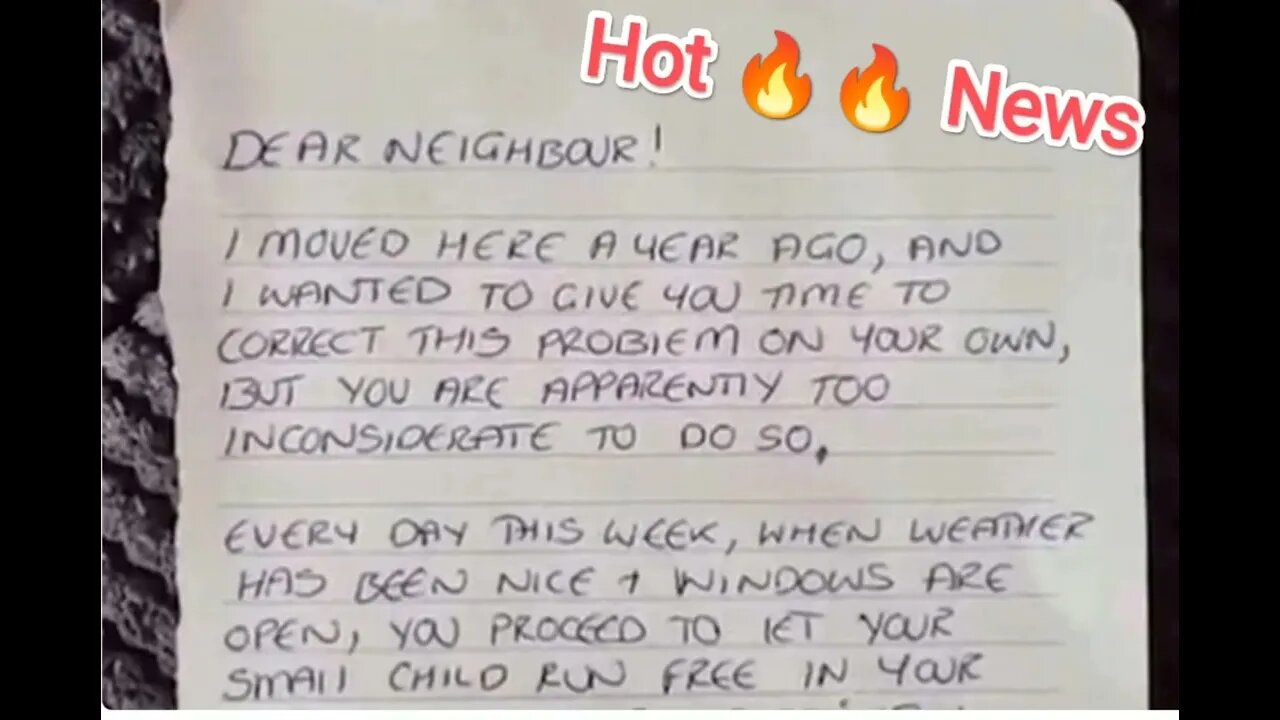 Hot 🔥🔥 News
DEAR NEIGHBOUR!
I MOVED HERE A YEAR AGO, AND
I WANTED TO GIVE YOU TIME TO
CORRECT THIS PROBLEM ON YOUR OWN,
BUT YOU ARE APPARENTLY TOO
INCONSIDERATE TO DO SO.
EVERY DAY THIS WEEK, WHEN WEATHER
HAS BEEN NICE + WINDOWS ARE
OPEN, YOU PROCEED TO LET YOUR
SMALL CHILD RUN FREE IN YOUR